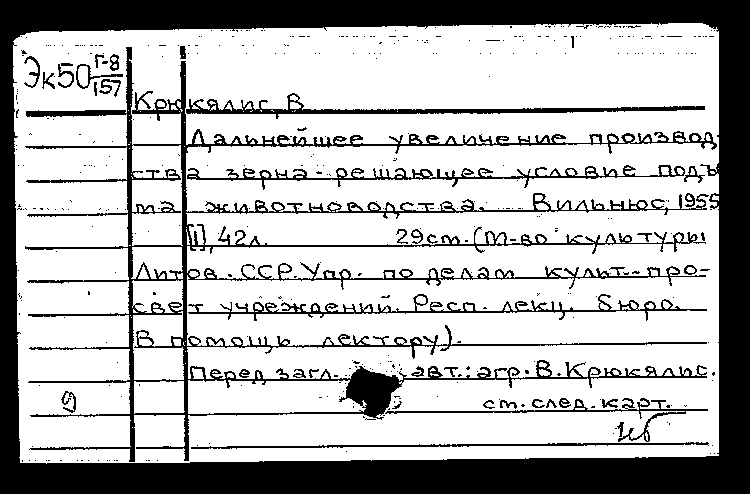 Эк50 Г-8/157
Крюкялис, В
Дальнейшее увеличение производ-
ства зерна - решающее условие подъе-
ма животноводства. Вильнюс, 1955
[1], 42л. 29см. (М-во культуры
Литов. ССР. Упр. по делам культ.-про-
свет учреждений. Респ. лекц. бюро.
В помощь лектору).
Перед загл. авт.: агр. В. Крюкялис.
9 см. след. карт.